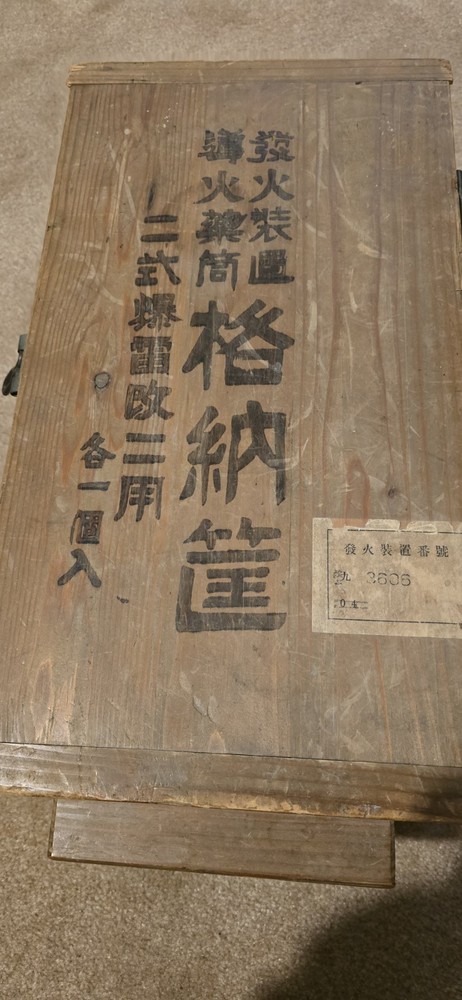 發火装置
導火薬筒
格納筐
二式爆雷改二用
各一個入
發火装置番號
3606